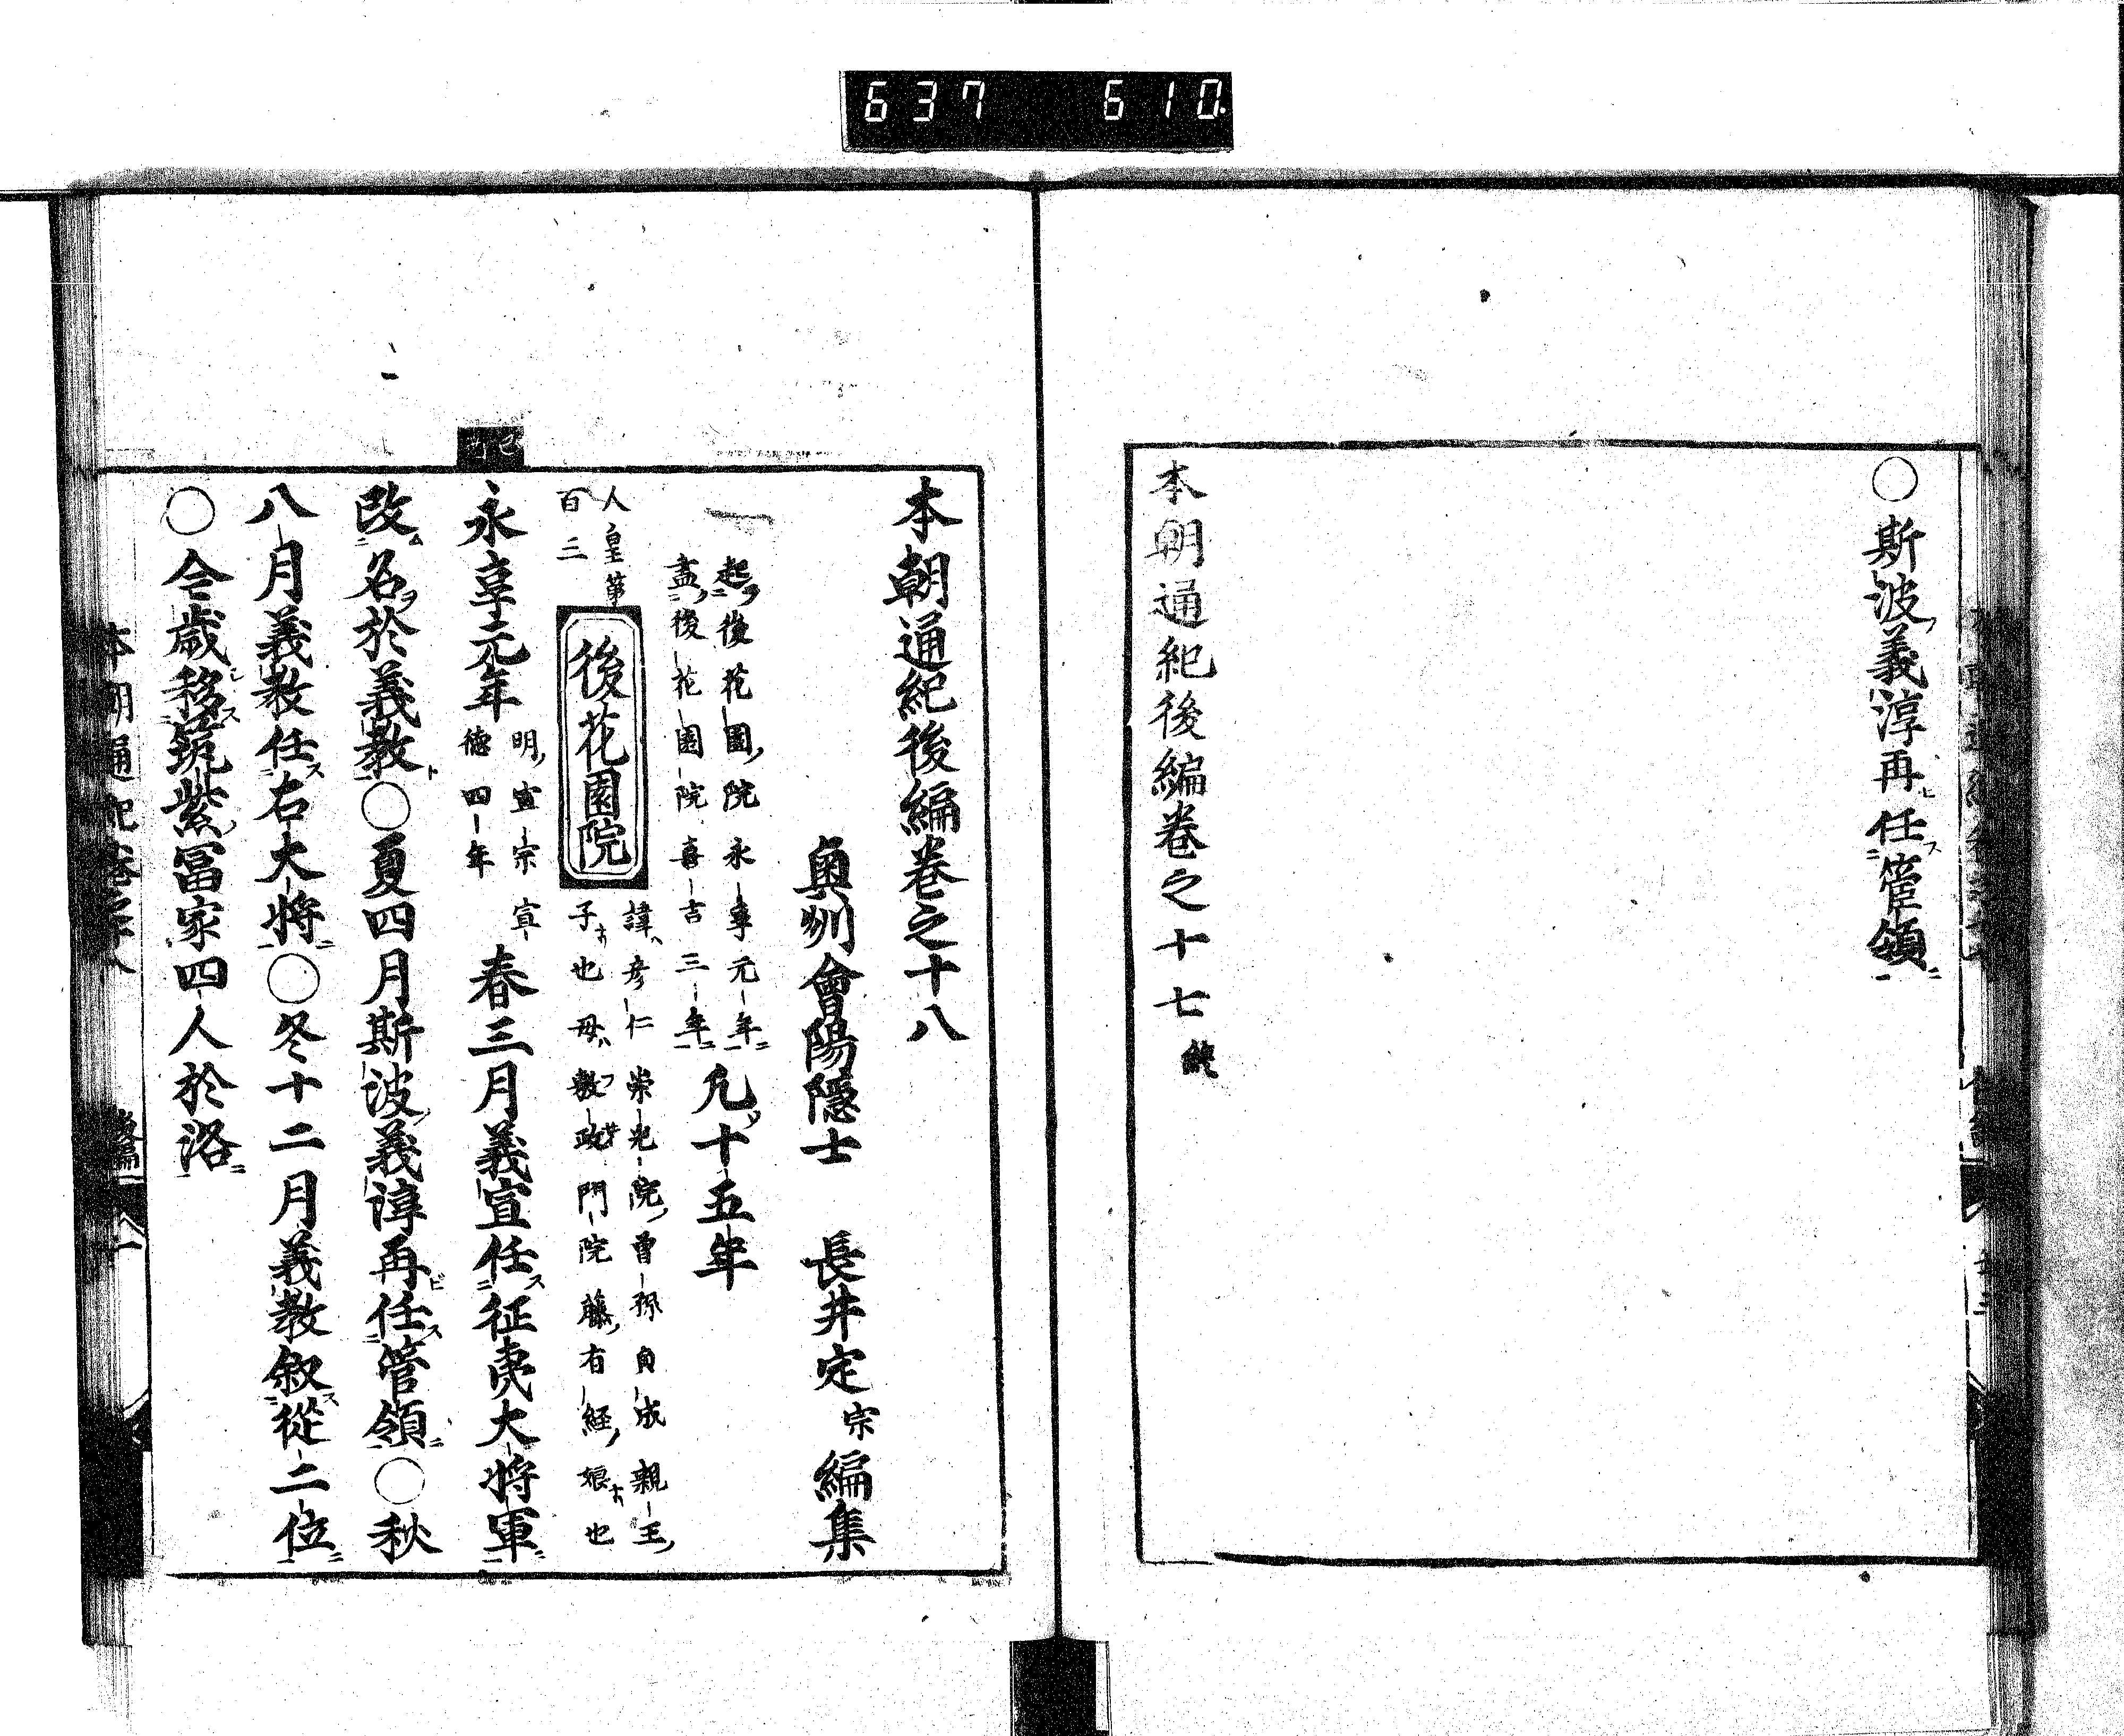 637 610
○斯波義淳再任管領
本朝通紀後編卷之十七 終
本朝通紀後編卷之十八
奥州會陽隱士 長井定宗編集
起後花園院永享元年
盡後花園院嘉吉三年
凡十五年
人皇第
百三
後花園院
諱彦仁崇光院曾孫貞成親王
子也母敷政門院藤有経娘也
己酉
永享元年
明宣宗宣
德四年
春三月義宣任征夷大將軍
改名於義教○夏四月斯波義淳再任管領○秋
八月義教任右大將○冬十二月義教叙從二位
○今歳移筑紫冨家四人於洛
本朝通紀卷之十八
後編